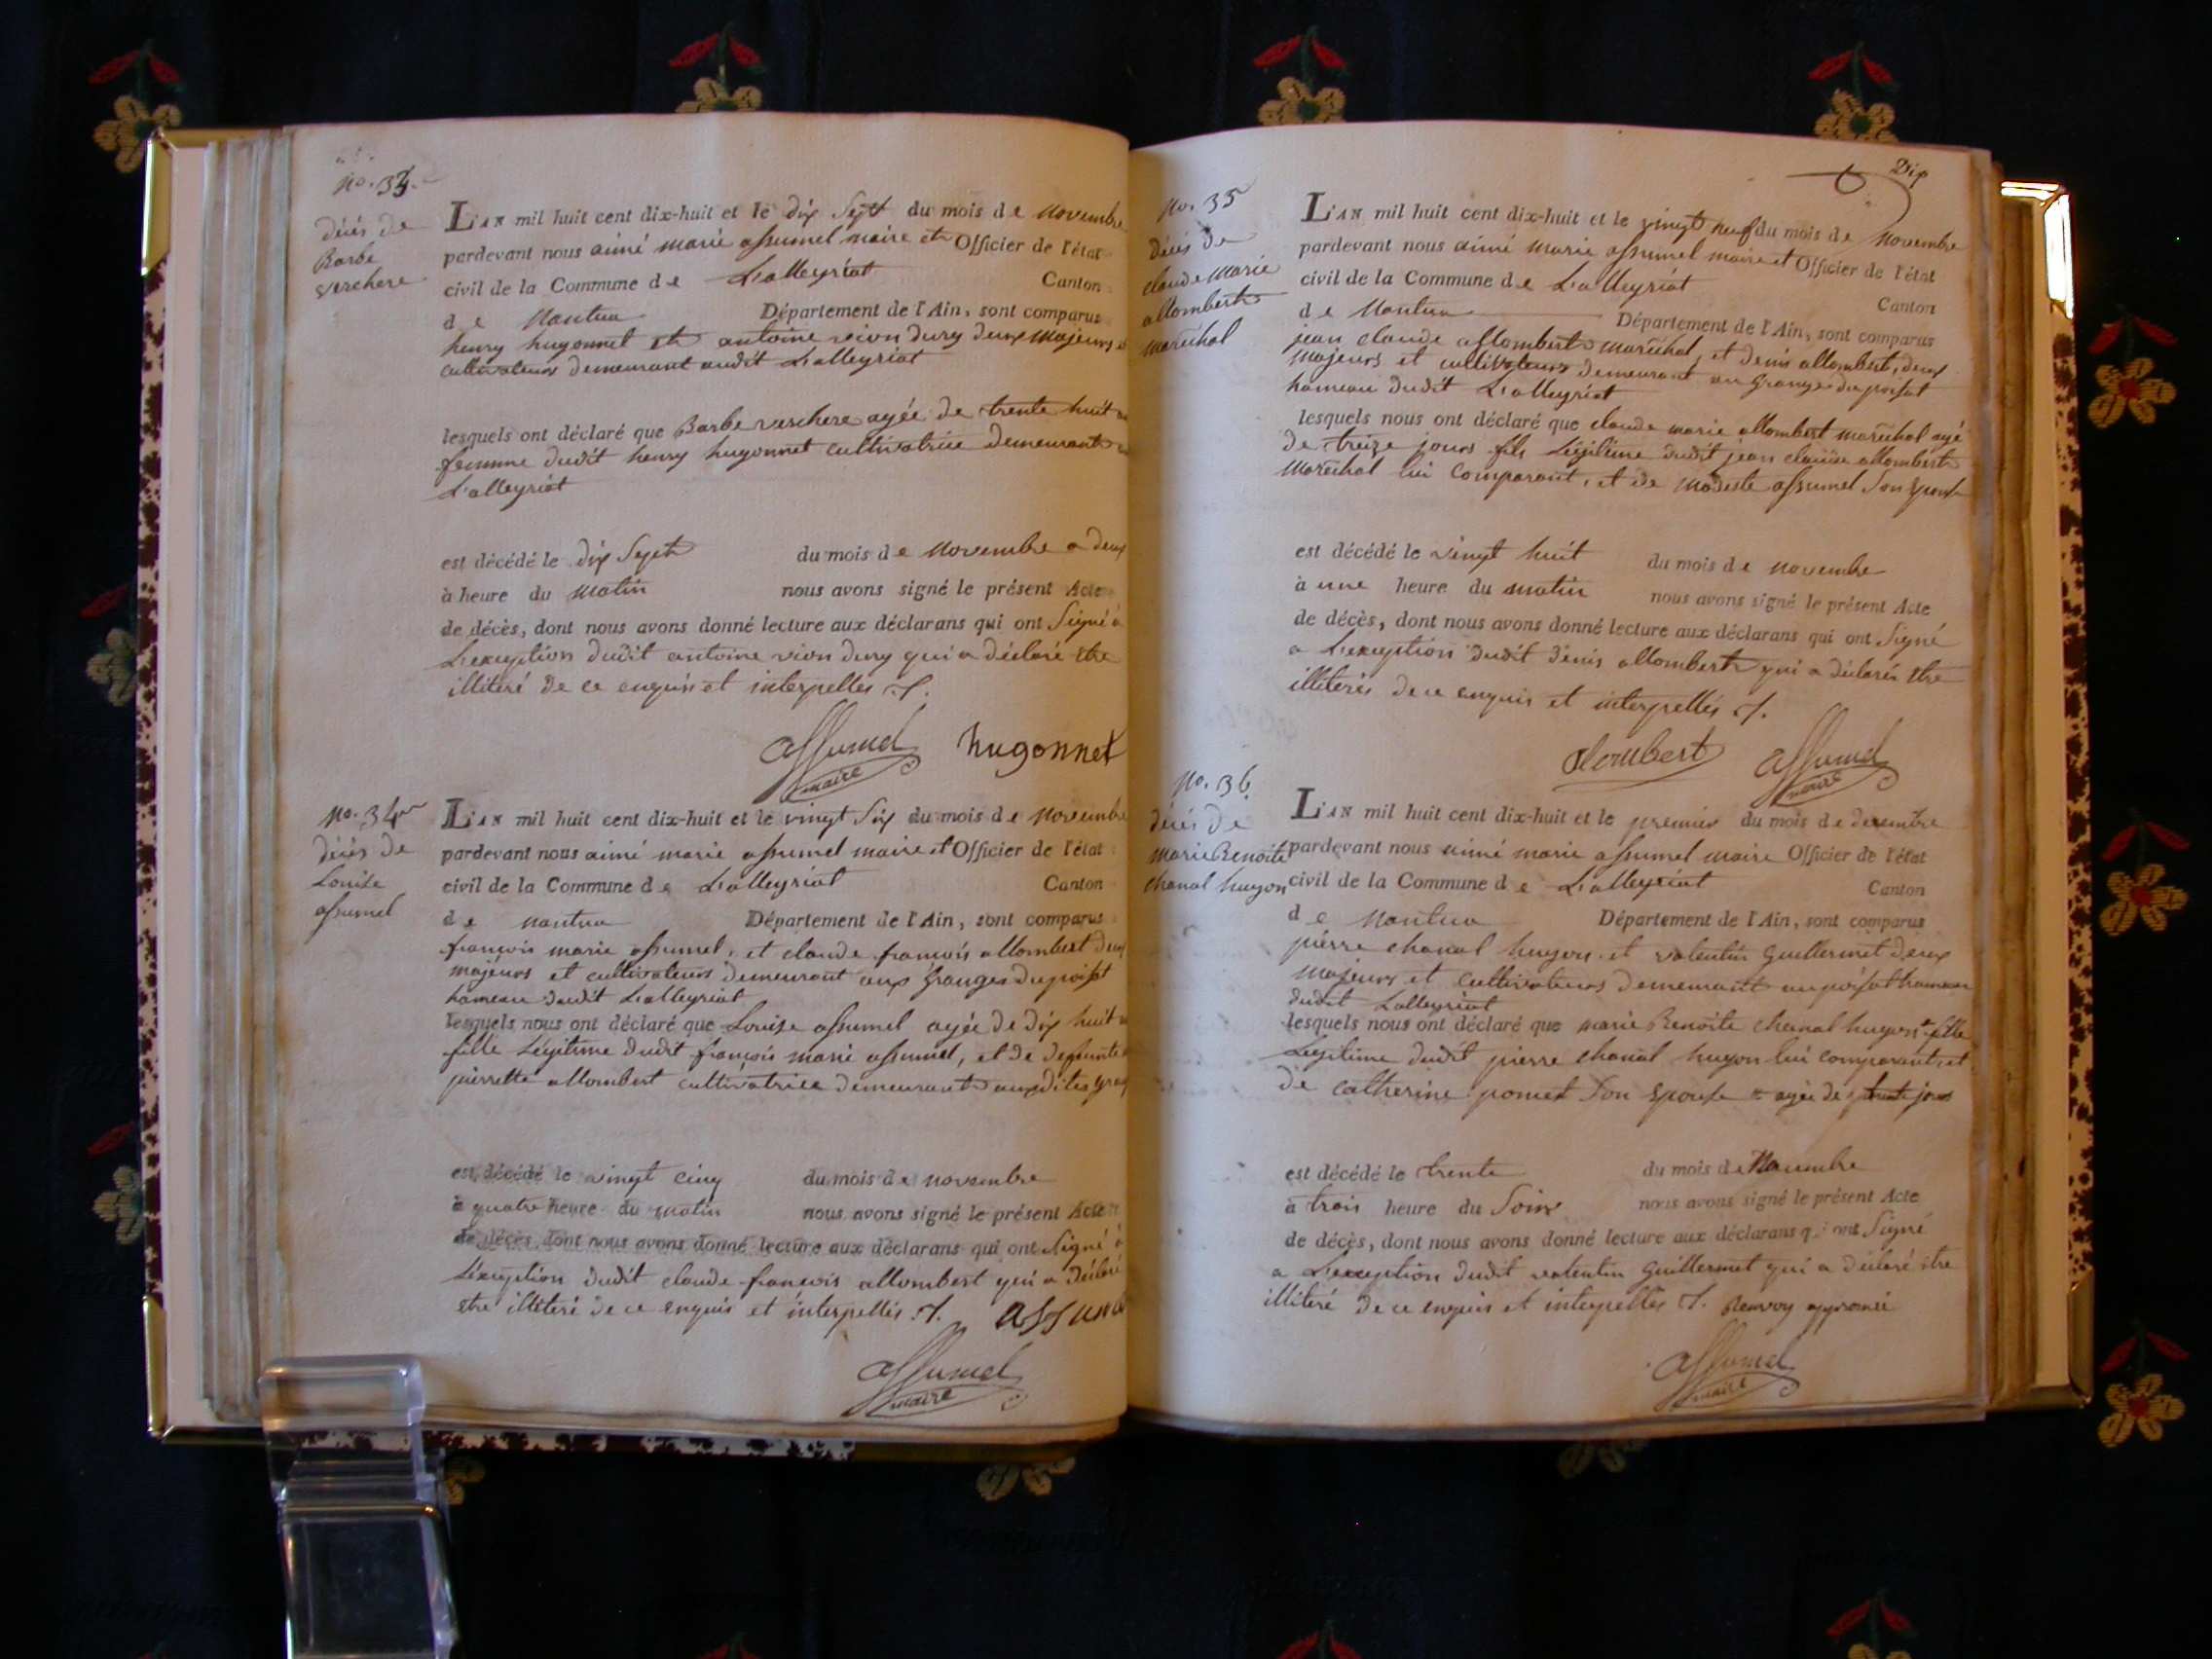 no. 33.
décés de
Barbe
verchere
L'AN mil huit cent dix-huit et le dix Sept du mois de novembre
pardevant nous aimé marie assumel maire et Officier de l'état
civil de la Commune de L'alleyriat Canton
de Nantua Département de l'Ain, sont comparus
henry hugonnet et antoine vion dury deux majeurs et
cultivateurs demeurant audit L'alleyriat
lesquels ont déclaré que Barbe verchere agée de trente huit
femme dudit henry hugonnet cultivatrice demeurant
L'alleyriat
est décédé le dix Sept du mois de novembre a deux
à heure du matin nous avons signé le présent Acte
de décès, dont nous avons donné lecture aux déclarans qui ont Signé à
L'exception dudit antoine vion dury qui a déclaré être
illiteré de ce enquis et interpellés ./.
assumel hugonnet
maire
no. 34
décés de
Louise
assumel
L'AN mil huit cent dix-huit et le vingt Six du mois de novembre
pardevant nous aimé marie assumel maire et Officier de l'état
civil de la Commune de L'alleyriat Canton
de nantua Département de l'Ain, sont comparus
françois marie assumel, et claude françois allombert deux
majeurs et cultivateurs demeurant aux granges du poisat
hameau dudit L'alleyriat
lesquels nous ont déclaré que Louise assumel agée de dix huit
fille Légitime dudit françois marie assumel, et de defunte
pierrette allombert cultivatrice demeurant auxdites
est décédé le vingt cinq du mois de novembre
à quatre heure du matin nous avons signé le présent Acte
de décès dont nous avons donné lecture aux déclarans qui ont Signé à
L'exception dudit claude françois allombert qui a déclaré
être illiteré de ce enquis et interpellés ./.
assumel
maire
Dix
no. 35
décés de
claude marie
allombert
maréchal
L'AN mil huit cent dix-huit et le vingt neuf du mois de novembre
pardevant nous aimé marie assumel maire et Officier de l'état
civil de la Commune de L'alleyriat
Canton
de Nantua Département de l'Ain, sont comparus
jean claude allombert maréchal, et denis allombert, deux
majeurs et cultivateurs demeurant au granges du poisat
hameau dudit L'alleyriat
lesquels nous ont déclaré que claude marie allombert maréchal agé
de treize jours fils Légitime dudit jean claude allombert
maréchal lui comparant, et de modeste assumel Son
est décédé le vingt huit du mois de novembre
à une heure du matin nous avons signé le présent Acte
de décès, dont nous avons donné lecture aux déclarans qui ont Signé
a L'exception dudit denis allombert qui a déclaré être
illiterés de ce enquis et interpellés ./.
assumel
maire
no. 36.
décés de
marie Benoite
chanal hugon
L'AN mil huit cent dix-huit et le premier du mois de decembre
pardevant nous aimé marie assumel maire Officier de l'état
civil de la Commune de L'alleyriat Canton
de Nantua Département de l'Ain, sont comparus
pierre chanal hugon et valentin Guillermet deux
majeurs et cultivateurs demeurant au poisat hameau
dudit Lalleyriat
lesquels nous ont déclaré que marie Benoite chanal hugon fille
Legitime dudit pierre chanal hugon lui comparant, et
de catherine pomet Son Epouse agée de
est décédé le trente du mois de Novembre
à trois heure du Soir nous avons signé le présent Acte
de décès, dont nous avons donné lecture aux déclarans qui ont Signé
a L'exception dudit valentin Guillermet qui a déclaré être
illiteré de ce enquis et interpellés ./. Renvoy approuvé
assumel
maire